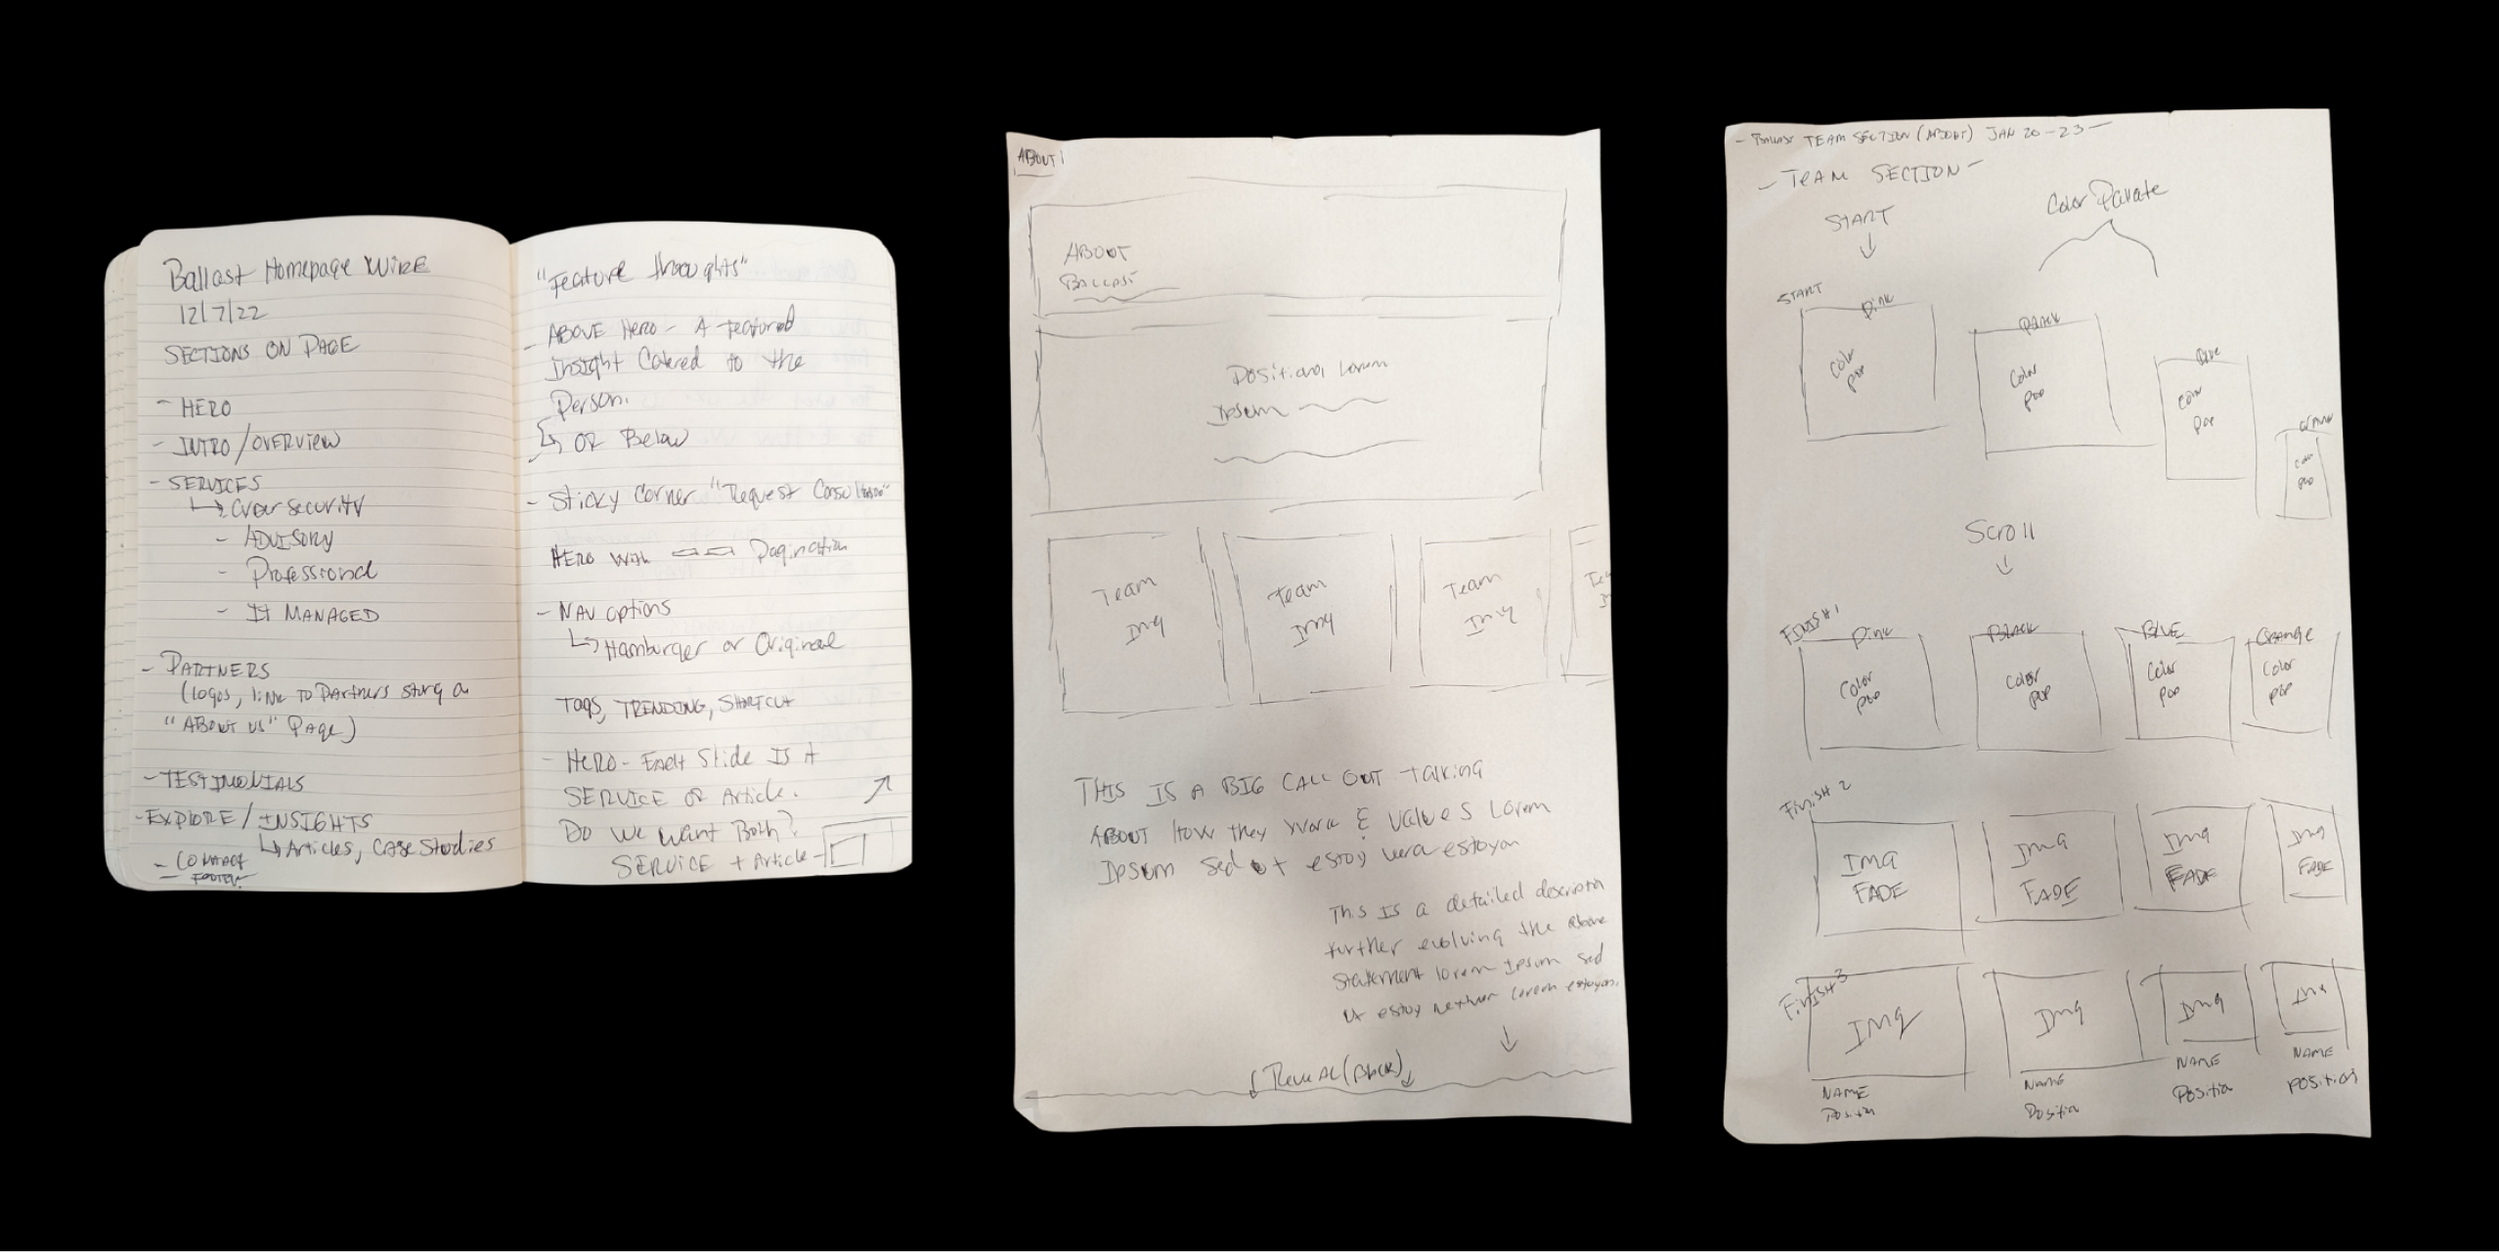 Ballast Homepage WIRE
12/7/22
SECTIONS ON PAGE
- HERO
- INTRO/OVERVIEW
- SERVICES
↳ Cyber SECURITY
- ADVISORY
- Professional
- It MANAGED
- PARTNERS
(logos, link TO Partners
"ABOUT US" PAGE)
- TESTIMONIALS
- EXPLORE / INSIGHTS
↳ Articles, CASE Studies
- CONTACT
- FOOTER
"Feature thoughts"
- ABOVE Hero - A featured
Insight Catered to the
Person.
↳ OR Below
- Sticky Corner "Request
HERO With Pagination
- NAV options
↳ Hamburger or Original
TAGS, TRENDING, SHORTCUT
- HERO - Each Slide Is A
SERVICE OR Article.
Do We Want Both?
SERVICE + Article -
ABOUT
ABOUT
BALLAST
Positional Lorem
Ipsum
Team
Img
Team
Img
Team
Img
THIS IS A BIG CALL OUT talking
ABOUT How they Work & Values Lorem
Ipsum Sed estoy
This Is a detailed description
further evolving the above
Statement lorem Ipsum Sed
Ut estoy Lorem estoyan.
↓ REVEAL (Black) ↓
- Ballast TEAM SECTION (ABOUT) JAN 20-23 -
- TEAM SECTION -
START
↓
Color
START
Pink
Color
Pop
BLACK
Color
Pop
Blue
Color
Pop
Color
Pop
Scroll
↓
FINISH 1
Pink
Color
Pop
BLACK
Color
Pop
BLUE
Color
Pop
Orange
Color
Pop
Finish 2
Img
FADE
Img
FADE
Img
FADE
Img
FADE
Finish 3
Img
NAME
Position
Img
NAME
Position
Img
NAME
Position
Img
NAME
Position